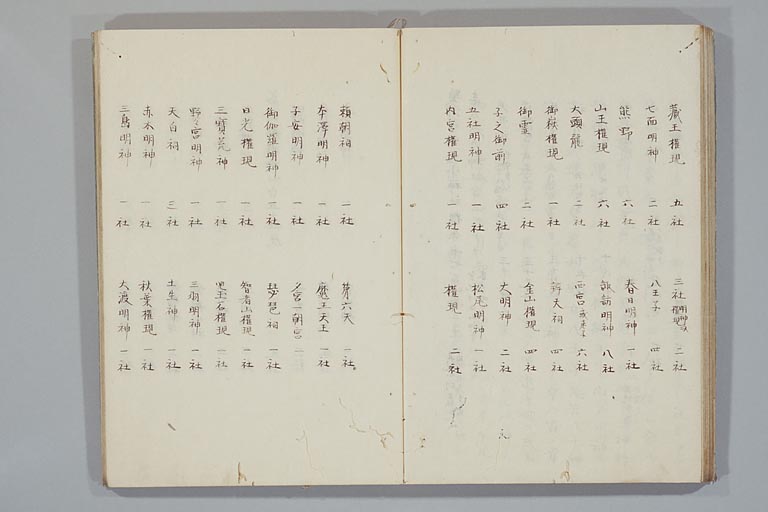 蔵王権現 五社 三社 明神 権現 二社
七面明神 二社 八王子 四社
熊野 六社 春日明神 一社
山王権現 六社 諏訪明神 八社
大頭龍 二社 西宮 六社
御嶽権現 一社 辨天祠 四社
御霊 二社 金山権現 四社
子之御前 四社 大明神 二社
五社明神 一社 松尾明神 一社
内宮権現 一社 権現 二社
頼朝祠 一社 第六天 一社
本澤明神 一社 魔王天王 一社
子安明神 一社 夕宮朝宮 二社
御伽羅明神 一社 琵琶祠 一社
日光権現 一社 智者山権現 一社
三寶荒神 一社 黒玉石権現 一社
野々宮明神 一社 三羽明神 一社
天白祠 三社 土生神 一社
赤木明神 一社 秋葉権現 一社
三島明神 一社 大渡明神 一社